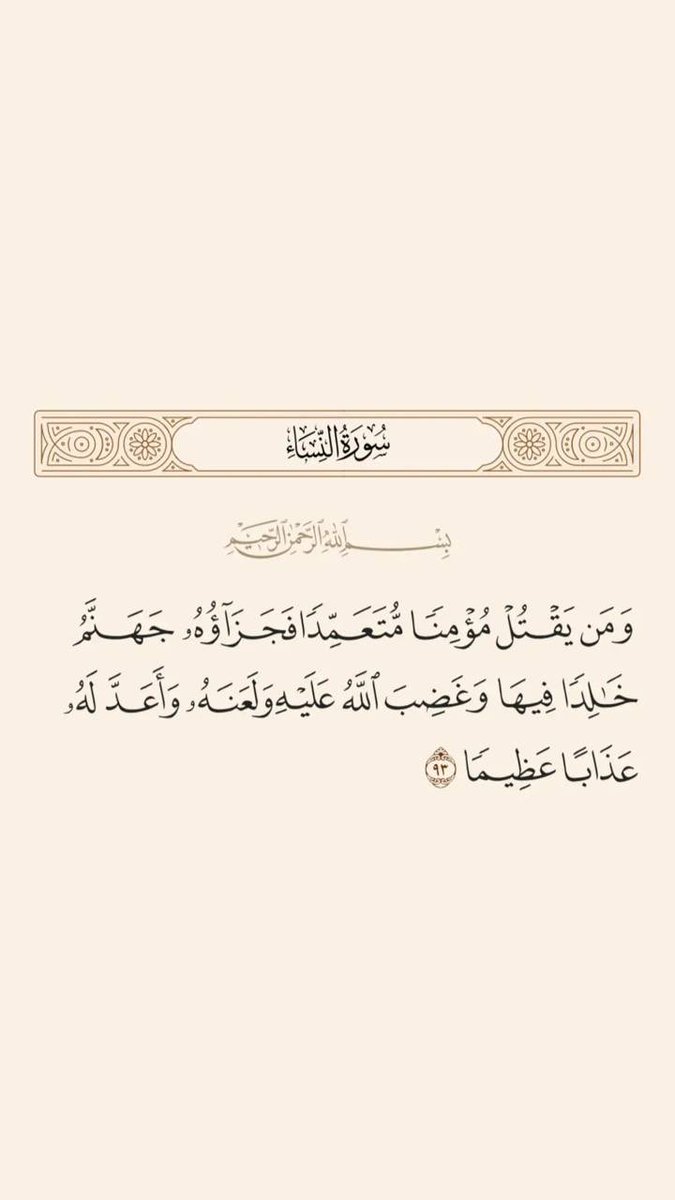 سُورَةُ النِّسَاءِ
بِسْمِ ٱللَّهِ ٱلرَّحْمَٰنِ ٱلرَّحِيمِ
وَمَن يَقْتُلْ مُؤْمِنًا مُّتَعَمِّدًا فَجَزَآؤُهُۥ جَهَنَّمُ
خَٰلِدًا فِيهَا وَغَضِبَ ٱللَّهُ عَلَيْهِ وَلَعَنَهُۥ وَأَعَدَّ لَهُۥ
عَذَابًا عَظِيمًا ٩٣